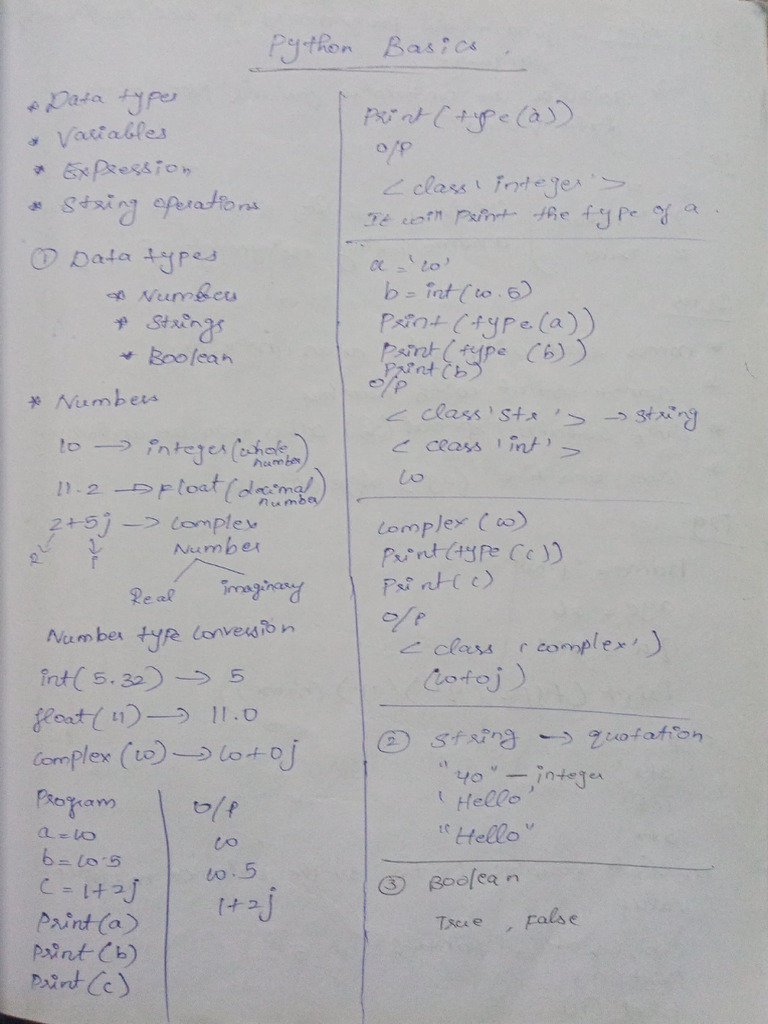 Python Basics.
* Data types
* Variables
* Expression
* String operations
① Data types
* Numbers
* Strings
* Boolean
* Numbers
10 → integer (whole number)
11.2 → float (decimal number)
2+5j → Complex Number
R i
Real imaginary
Number type conversion
int(5.32) → 5
float(11) → 11.0
complex(10) → 10+0j
Program
a=10
b=10.5
C = 1+2j
Print(a)
Print(b)
Print(c)
O/P
10
10.5
1+2j
Print(type(a))
O/P
<class 'integer'>
It will print the type of a.
a='10'
b=int(10.5)
Print(type(a))
Print(type (b))
Print(b)
O/P
<class 'str'> → string
<class 'int'>
10
Complex(10)
Print(type(c))
Print(c)
O/P
<class 'complex')
(10+0j)
② String → quotation
"40" – integer
'Hello'
"Hello"
③ Boolean
True, False